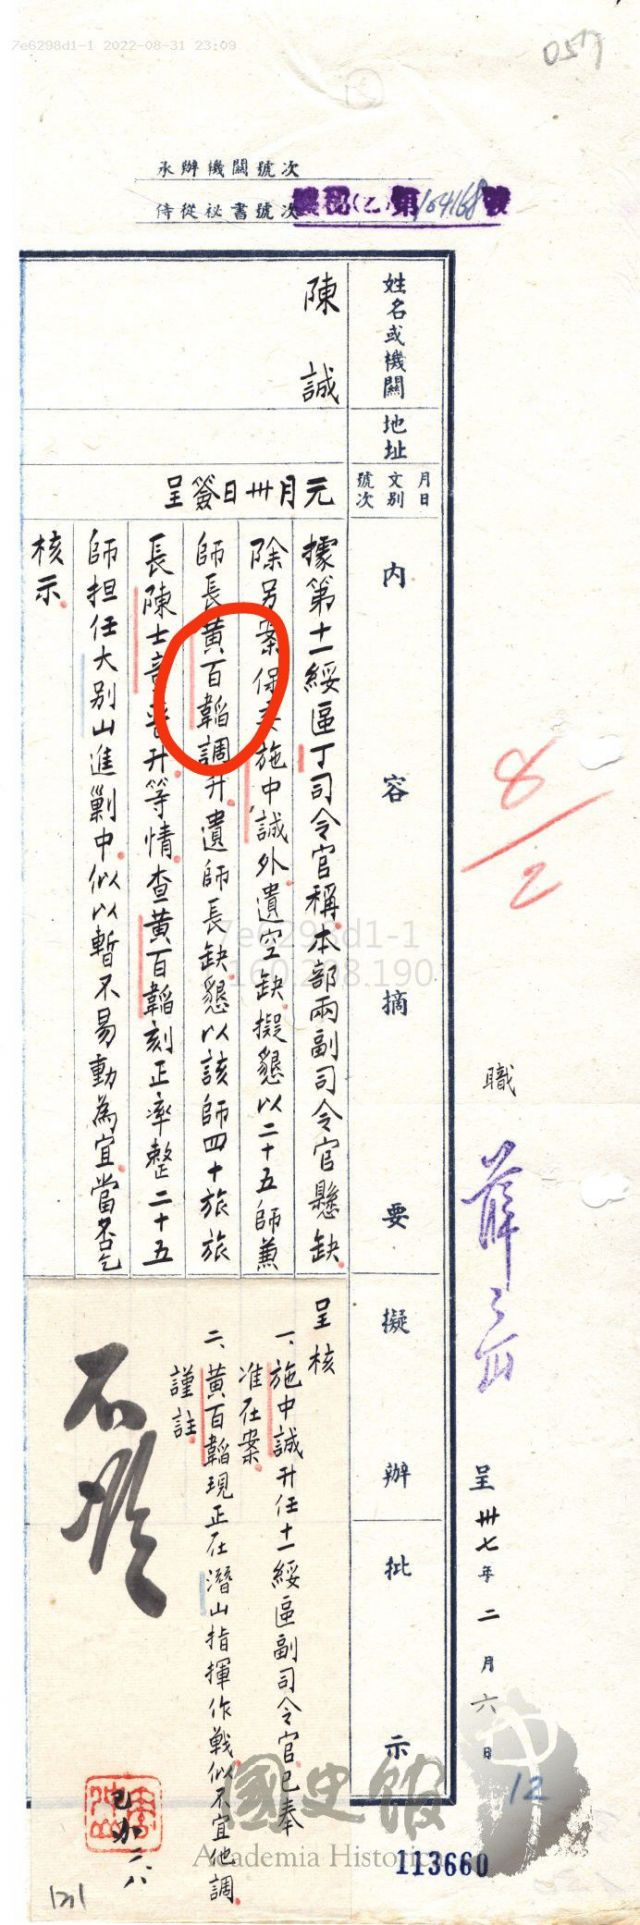 7e6298d1-1 2022-08-31 23:09
承辦機關號次
侍從祕書號次
(乙)第104168號
姓名或機關
地址
月日
文別
號次
內容摘要
擬辦
批示
陳誠
元月卅日簽呈
據第十一綏區丁司令官稱本部兩副司令官懸缺
除另案保 施中誠外遺空缺擬懇以二十五師兼
師長黃百韜調升遺師長缺懇以該師四十旅旅
長陳士章晉升等情查黃百韜刻正率整二十五
師担任大別山進剿中似以暫不易動為宜當否乞
核示
呈核
一、施中誠升任十一綏區副司令官已奉
准在案
二、黃百韜現正在潛山指揮作戰似不宜他調
謹註
職
薛
呈卅七年二月六日
8/2
12
7e6298d1-1
160.208.190
國史館
Academia Historica
113660